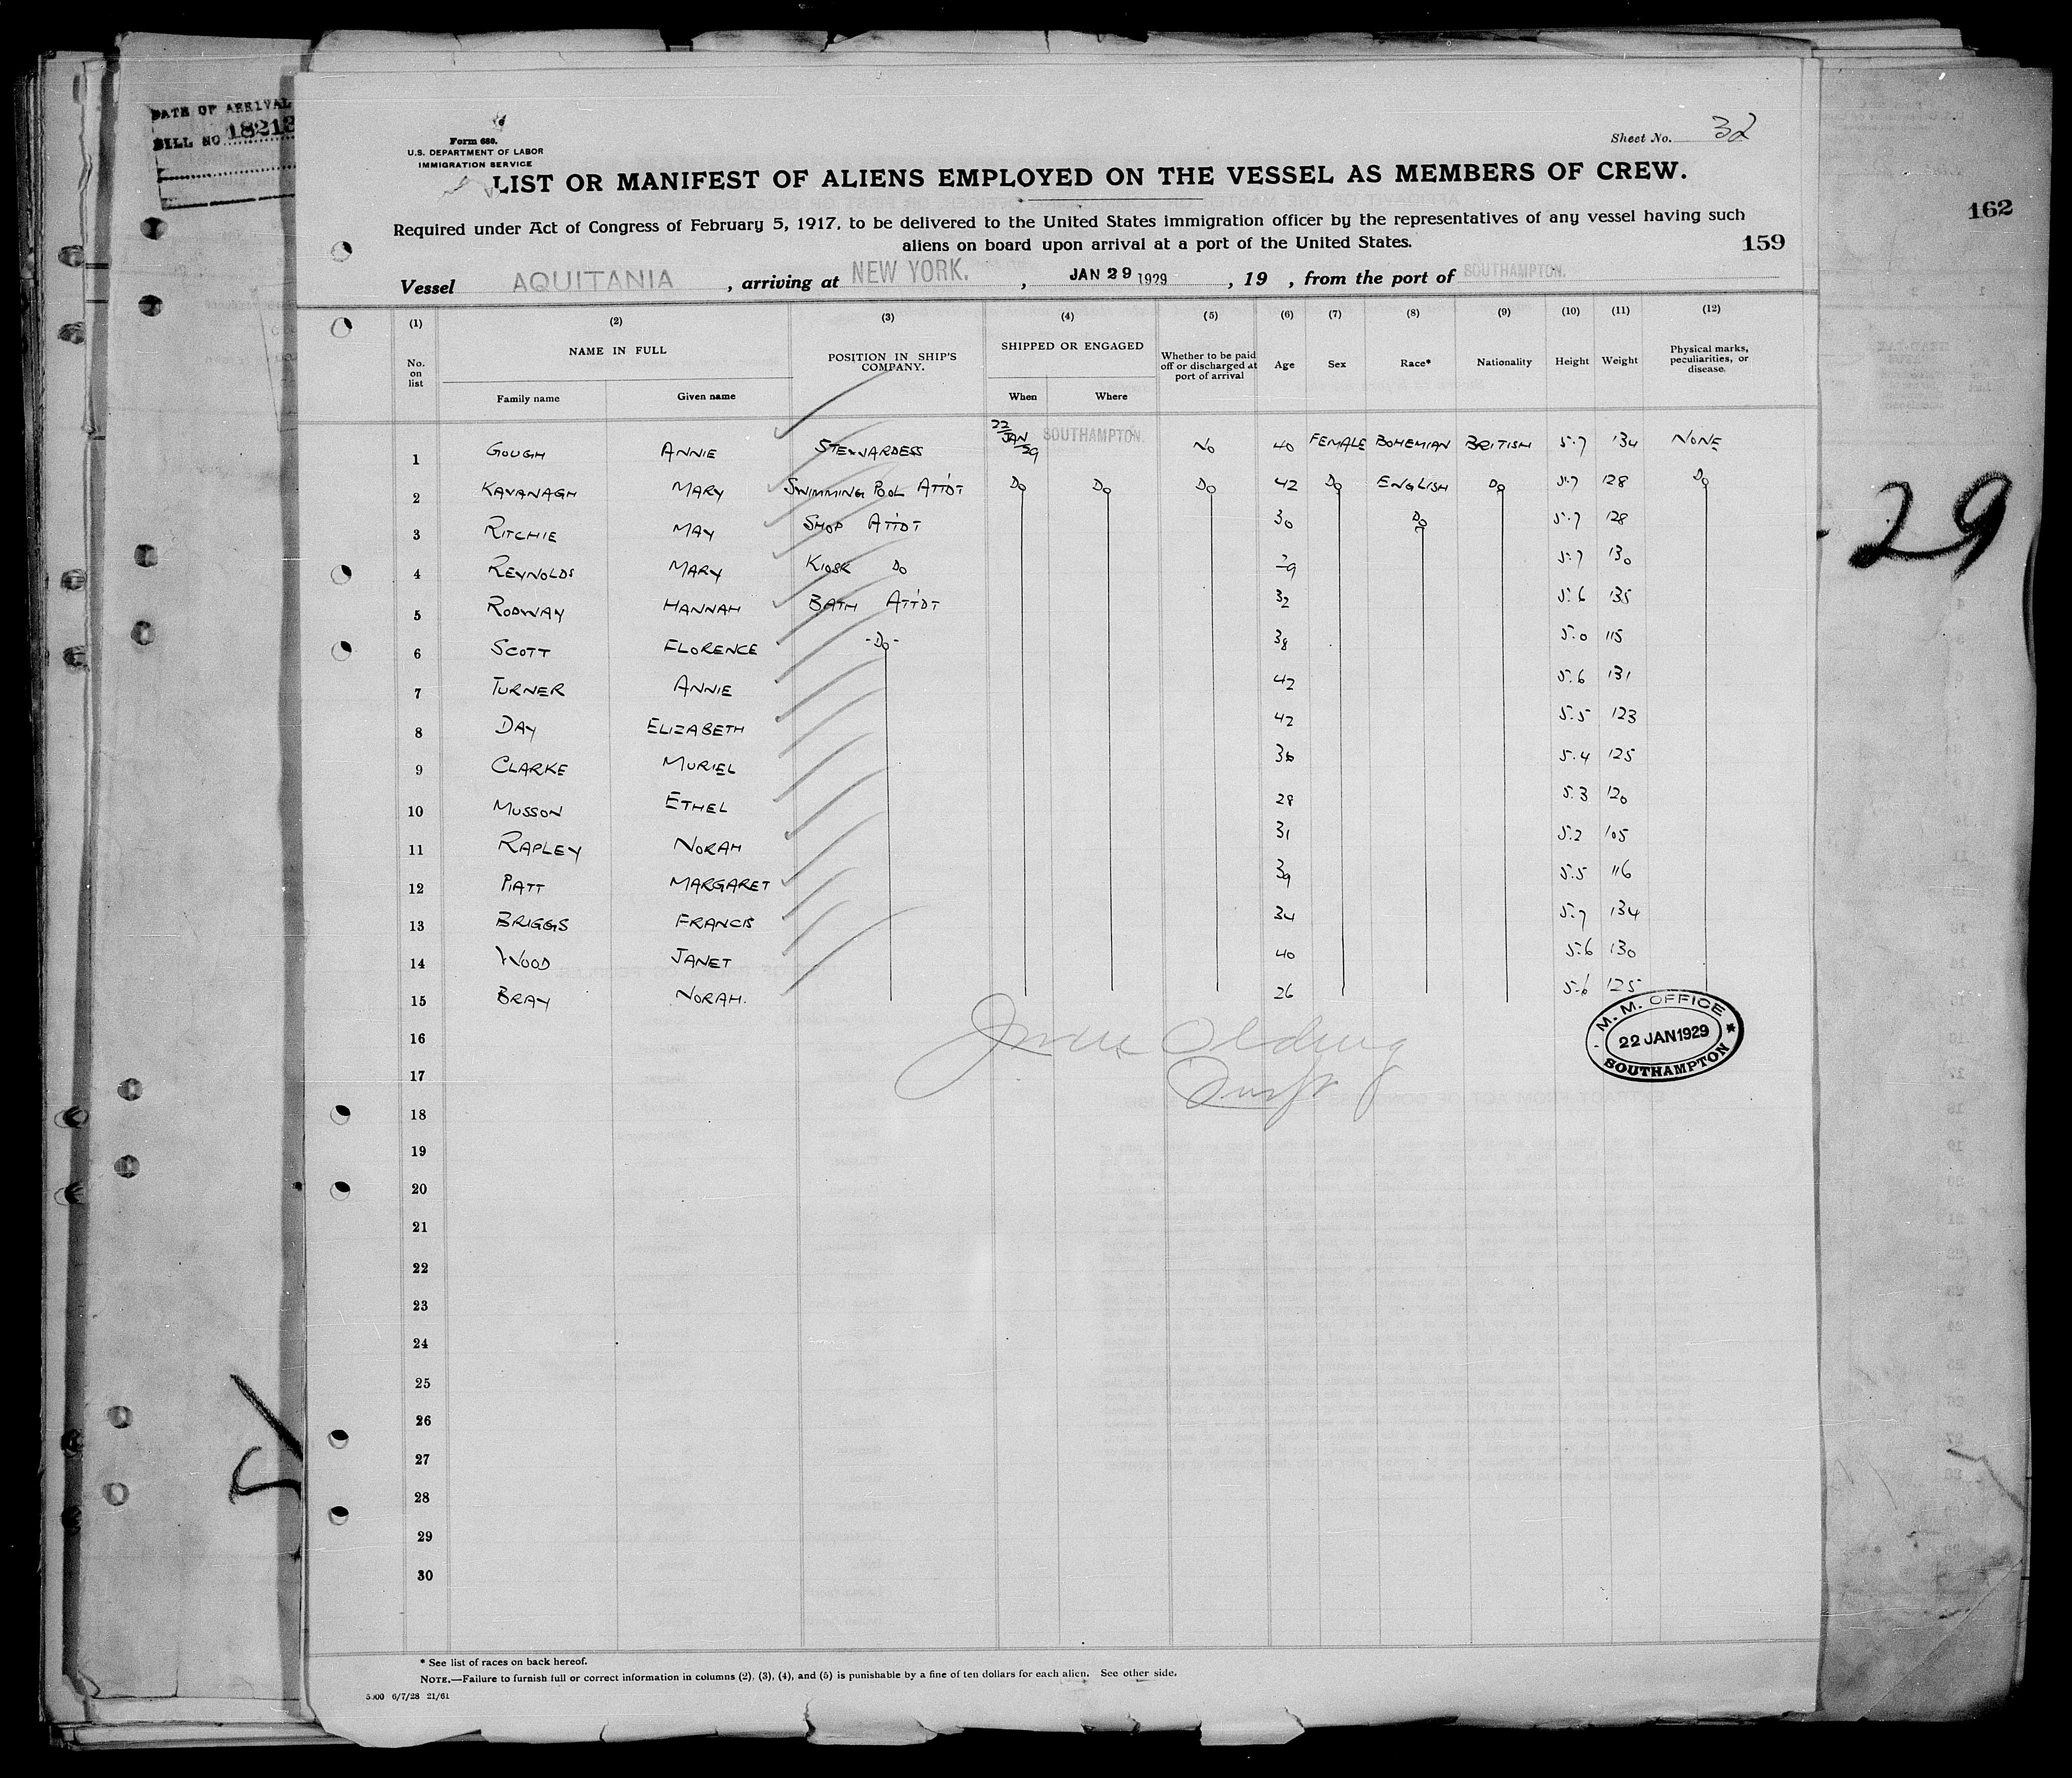 DATE OF ARRIVAL
BILL NO 18213
Form 680.
U.S. DEPARTMENT OF LABOR
IMMIGRATION SERVICE
Sheet No. 32
LIST OR MANIFEST OF ALIENS EMPLOYED ON THE VESSEL AS MEMBERS OF CREW.
Required under Act of Congress of February 5, 1917, to be delivered to the United States immigration officer by the representatives of any vessel having such
aliens on board upon arrival at a port of the United States.
159
162
Vessel AQUITANIA, arriving at NEW YORK., JAN 29 1929, 19 , from the port of SOUTHAMPTON.
(1) (2) (3) (4) (5) (6) (7) (8) (9) (10) (11) (12)
No. on list NAME IN FULL POSITION IN SHIP'S COMPANY. SHIPPED OR ENGAGED Whether to be paid off or discharged at port of arrival Age Sex Race* Nationality Height Weight Physical marks, peculiarities, or disease.
Family name Given name When Where
1 GOUGH ANNIE STEWARDESS 22 JAN 29 SOUTHAMPTON. NO 40 FEMALE BOHEMIAN BRITISH 5.7 134 NONE
2 KAVANAGH MARY SWIMMING POOL ATT'DT DO DO DO 42 DO ENGLISH DO 5.7 128 DO
3 RITCHIE MAY SHOP ATT'DT 30 DO 5.7 128
4 REYNOLDS MARY KIOSK DO 29 5.7 130
5 RODWAY HANNAH BATH ATT'DT 32 5.6 135
6 SCOTT FLORENCE -DO- 38 5.0 115
7 TURNER ANNIE 42 5.6 131
8 DAY ELIZABETH 42 5.5 123
9 CLARKE MURIEL 36 5.4 125
10 MUSSON ETHEL 28 5.3 120
11 RAPLEY NORAH 31 5.2 105
12 PIATT MARGARET 39 5.5 116
13 BRIGGS FRANCIS 34 5.7 134
14 WOOD JANET 40 5.6 130
15 BRAY NORAH. 26 5.6 125
16
17
18
19
20
21
22
23
24
25
26
27
28
29
30
M. M. OFFICE
22 JAN 1929
SOUTHAMPTON
29
* See list of races on back hereof.
NOTE.—Failure to furnish full or correct information in columns (2), (3), (4), and (5) is punishable by a fine of ten dollars for each alien. See other side.
5000 6/7/28 21/61